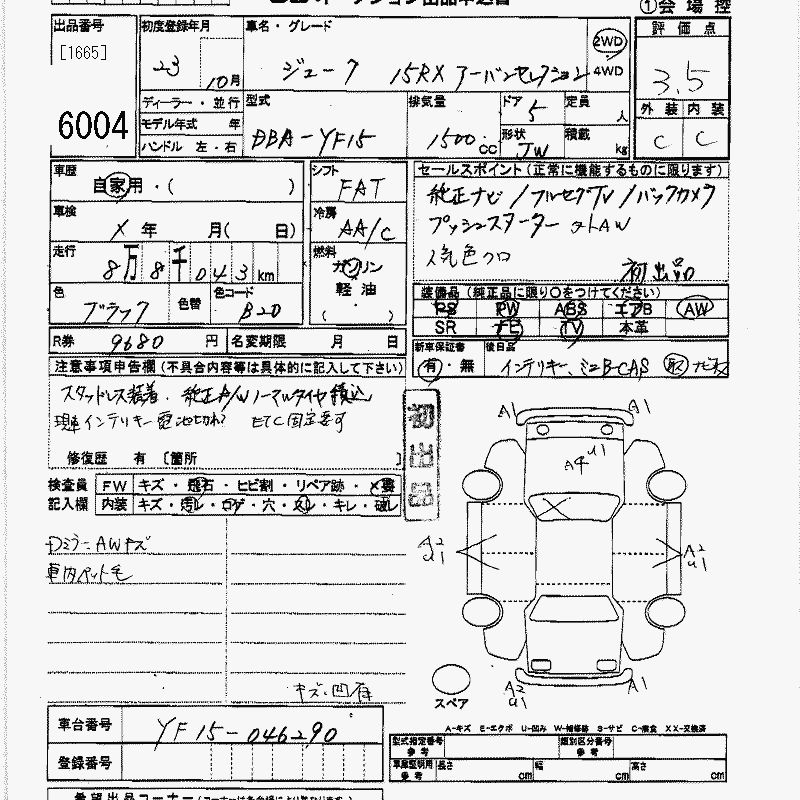 ①会場控
出品番号
[1665]
6004
初度登録年月
23 10月
車名・グレード
ジューク 15RX アーバンセレクション
2WD
4WD
評価点
3.5
外装 内装
C C
ディーラー・並行
モデル年式 年
ハンドル 左・右
型式
DBA-YF15
排気量
1500cc
ドア
5
形状
JW
定員
人
積載
kg
車歴
自家用・( )
車検
X年 月( 日)
走行
8万8千043km
色
ブラック
色替
色コード
B20
シフト
FAT
冷房
AA/C
燃料
ガソリン
軽油
( )
セールスポイント(正常に機能するものに限ります)
純正ナビ/フルセグTV/バックカメラ
プッシュスターター 社外AW
人気色クロ
初出品
装備品(純正品に限り○をつけてください)
PS PW ABS エアB AW
SR ナビ TV 本革
新車保証書
有・無
後日品
インテリキー、ミニB-CAS 取 ナビ
R券 9680円
名変期限 月 日
注意事項申告欄(不具合内容等は具体的に記入して下さい)
スタッドレス装着. 純正A/Wノーマルタイヤ積込
現車インテリキー電池切れ? ETC固定要す
修復歴 有 [箇所 ]
初出品
検査員
記入欄
FW キズ・飛石・ヒビ割・リペア跡・X要
内装 キズ・汚レ・コゲ・穴・スレ・キレ・破レ
Dミラー AWキズ
車内ペット毛
キズ、凹有
A1 A1
A4 U1
X
A2 U1
A2 U1
A2 U1
A1
スペア
A-キズ E-エクボ U-凹み W-補修跡 S-サビ C-腐食 XX-交換済
車台番号
YF15-046290
登録番号
型式指定番号 参考
類別区分番号 参考
車庫証明用 参考
長さ cm
幅 cm
高さ cm